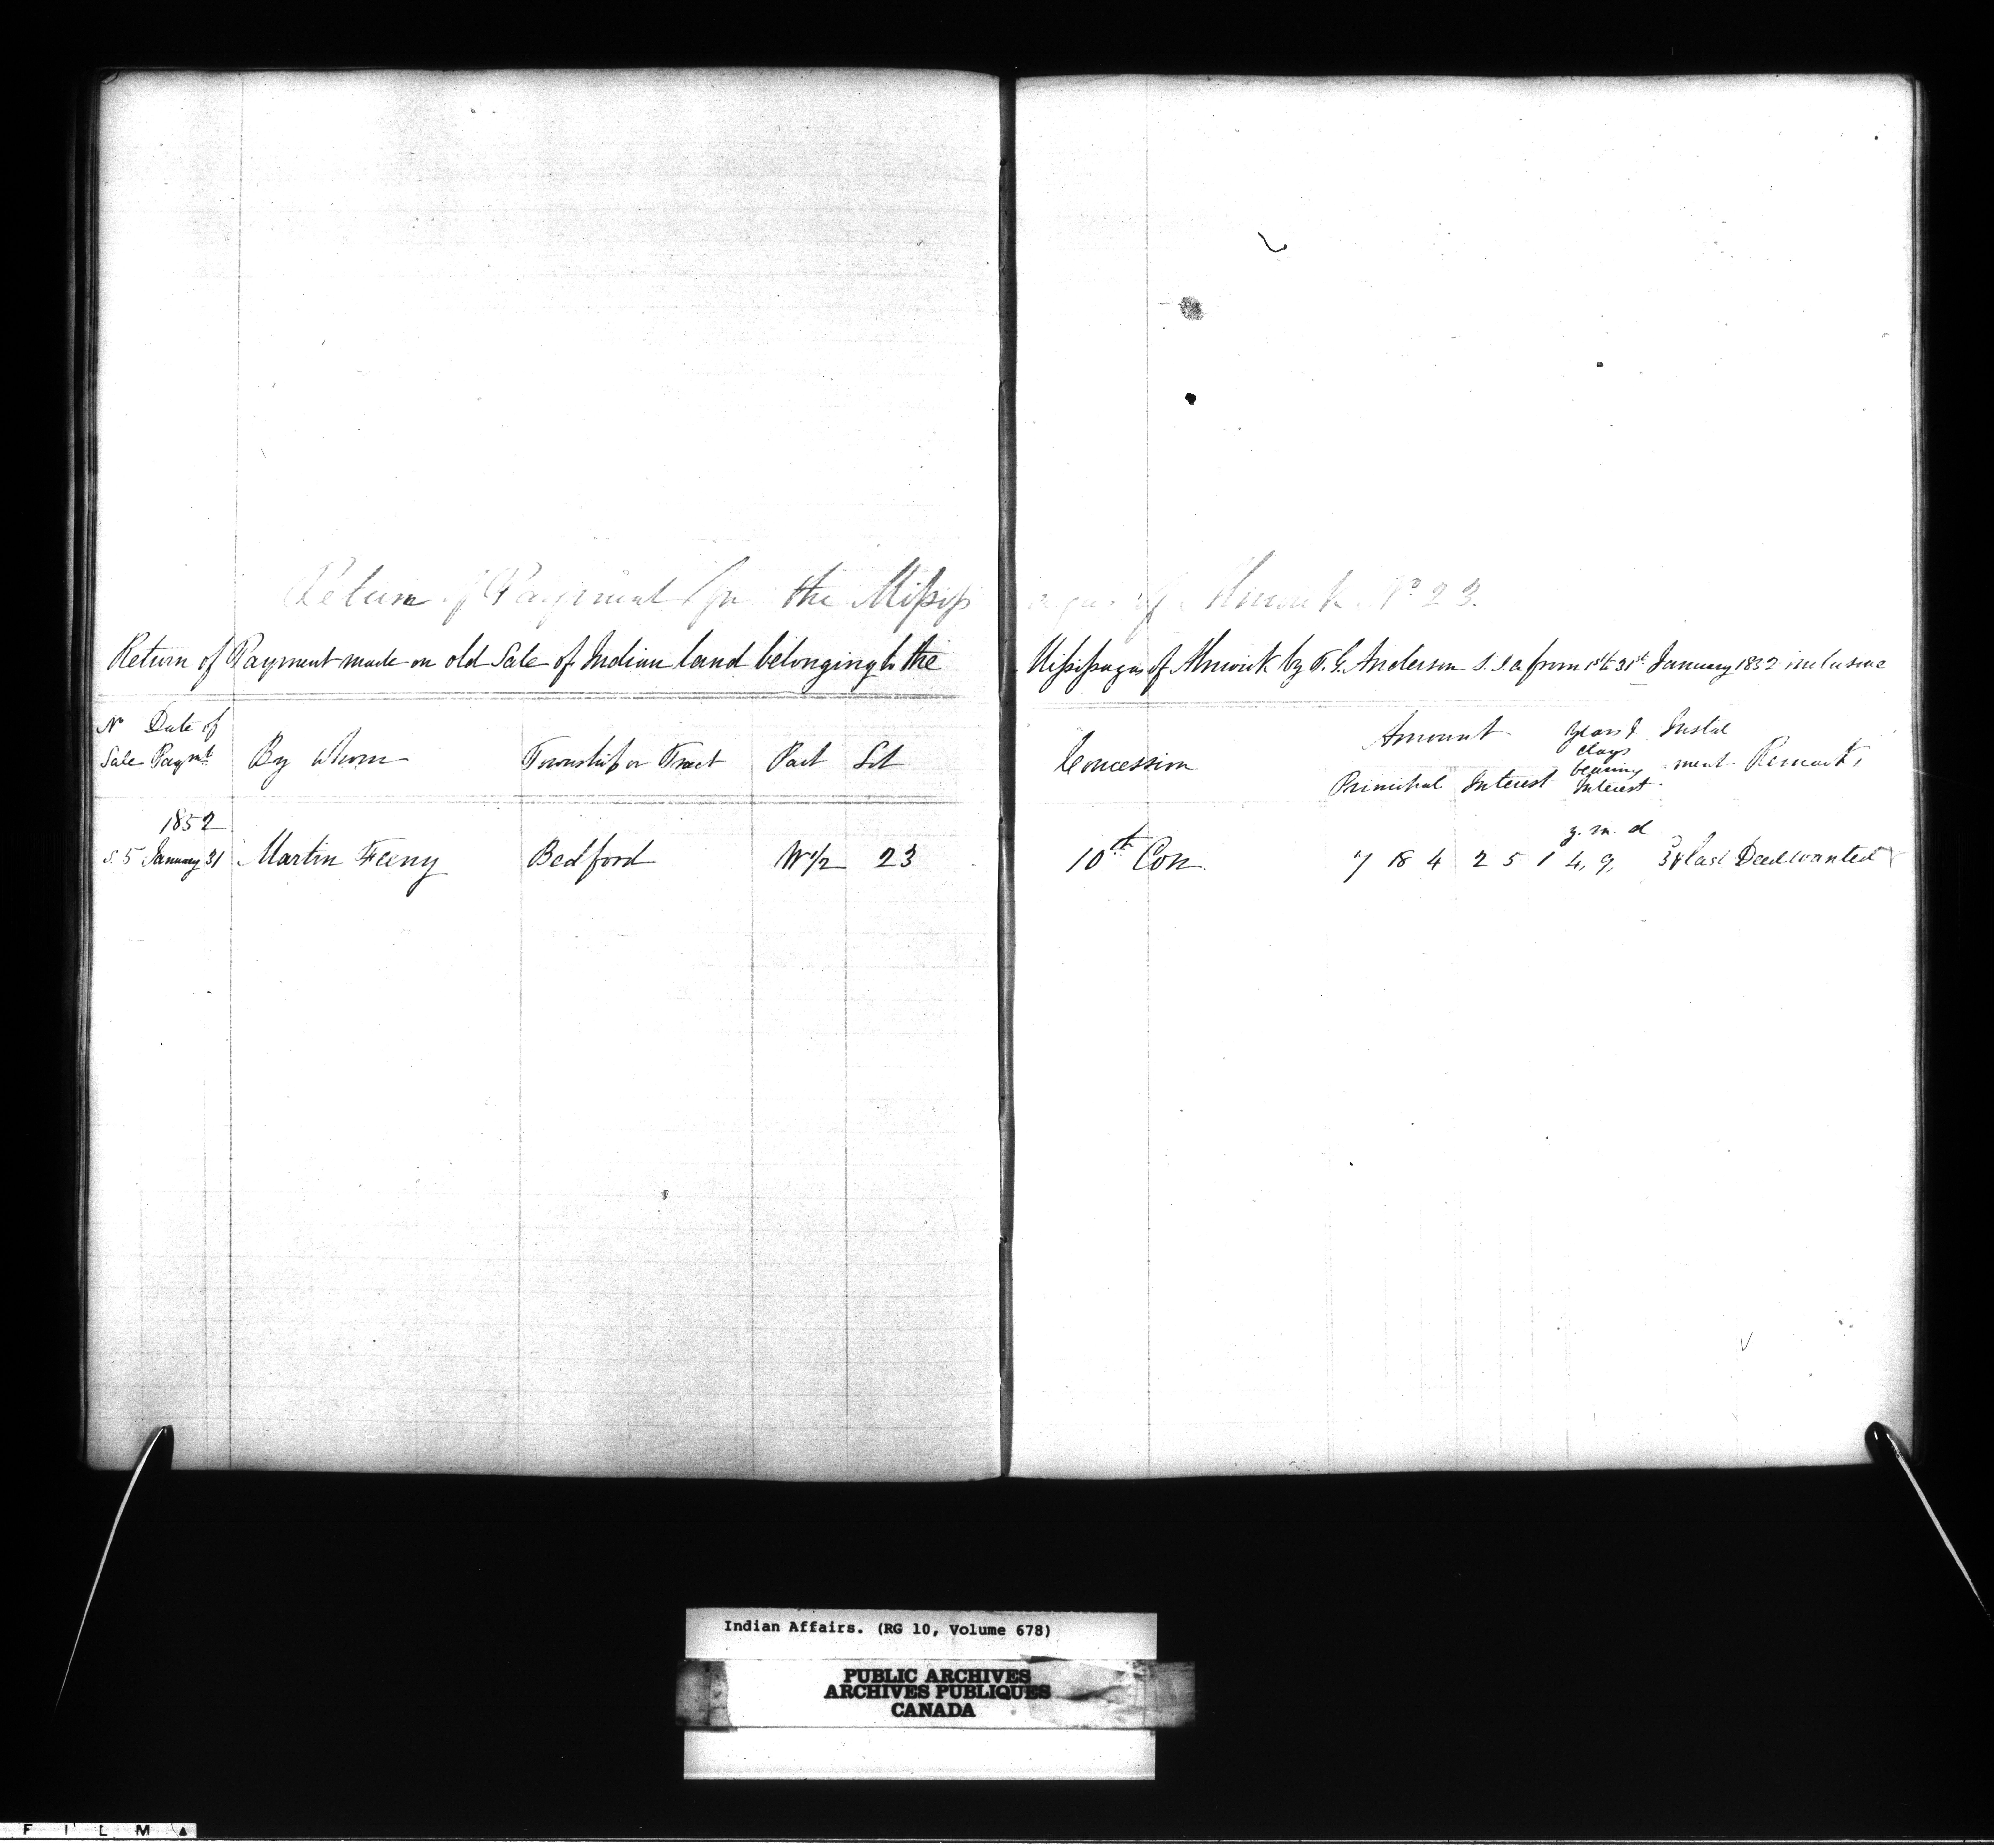 Return of Payment for the Missis agas of Alnwick No 23.
Return of Payment made on old Sale of Indian land belonging to the Missisagas of Alnwick by T. G. Anderson S. I. a from 1st to 31st January 1832 inclusive
No Sale Date of Paymt By Whom Township or Tract Part Lot Concession Amount Principal Interest years & days bearing Interest Instalment Remarks
1852 y. m. d
S. 5 January 31 Martin Feeny Bedford W 1/2 23 10th Con. 7 18 4 2 5 1 4, 9, last Deed wanted
Indian Affairs. (RG 10, Volume 678)
PUBLIC ARCHIVES
ARCHIVES PUBLIQUES
CANADA
F I L M